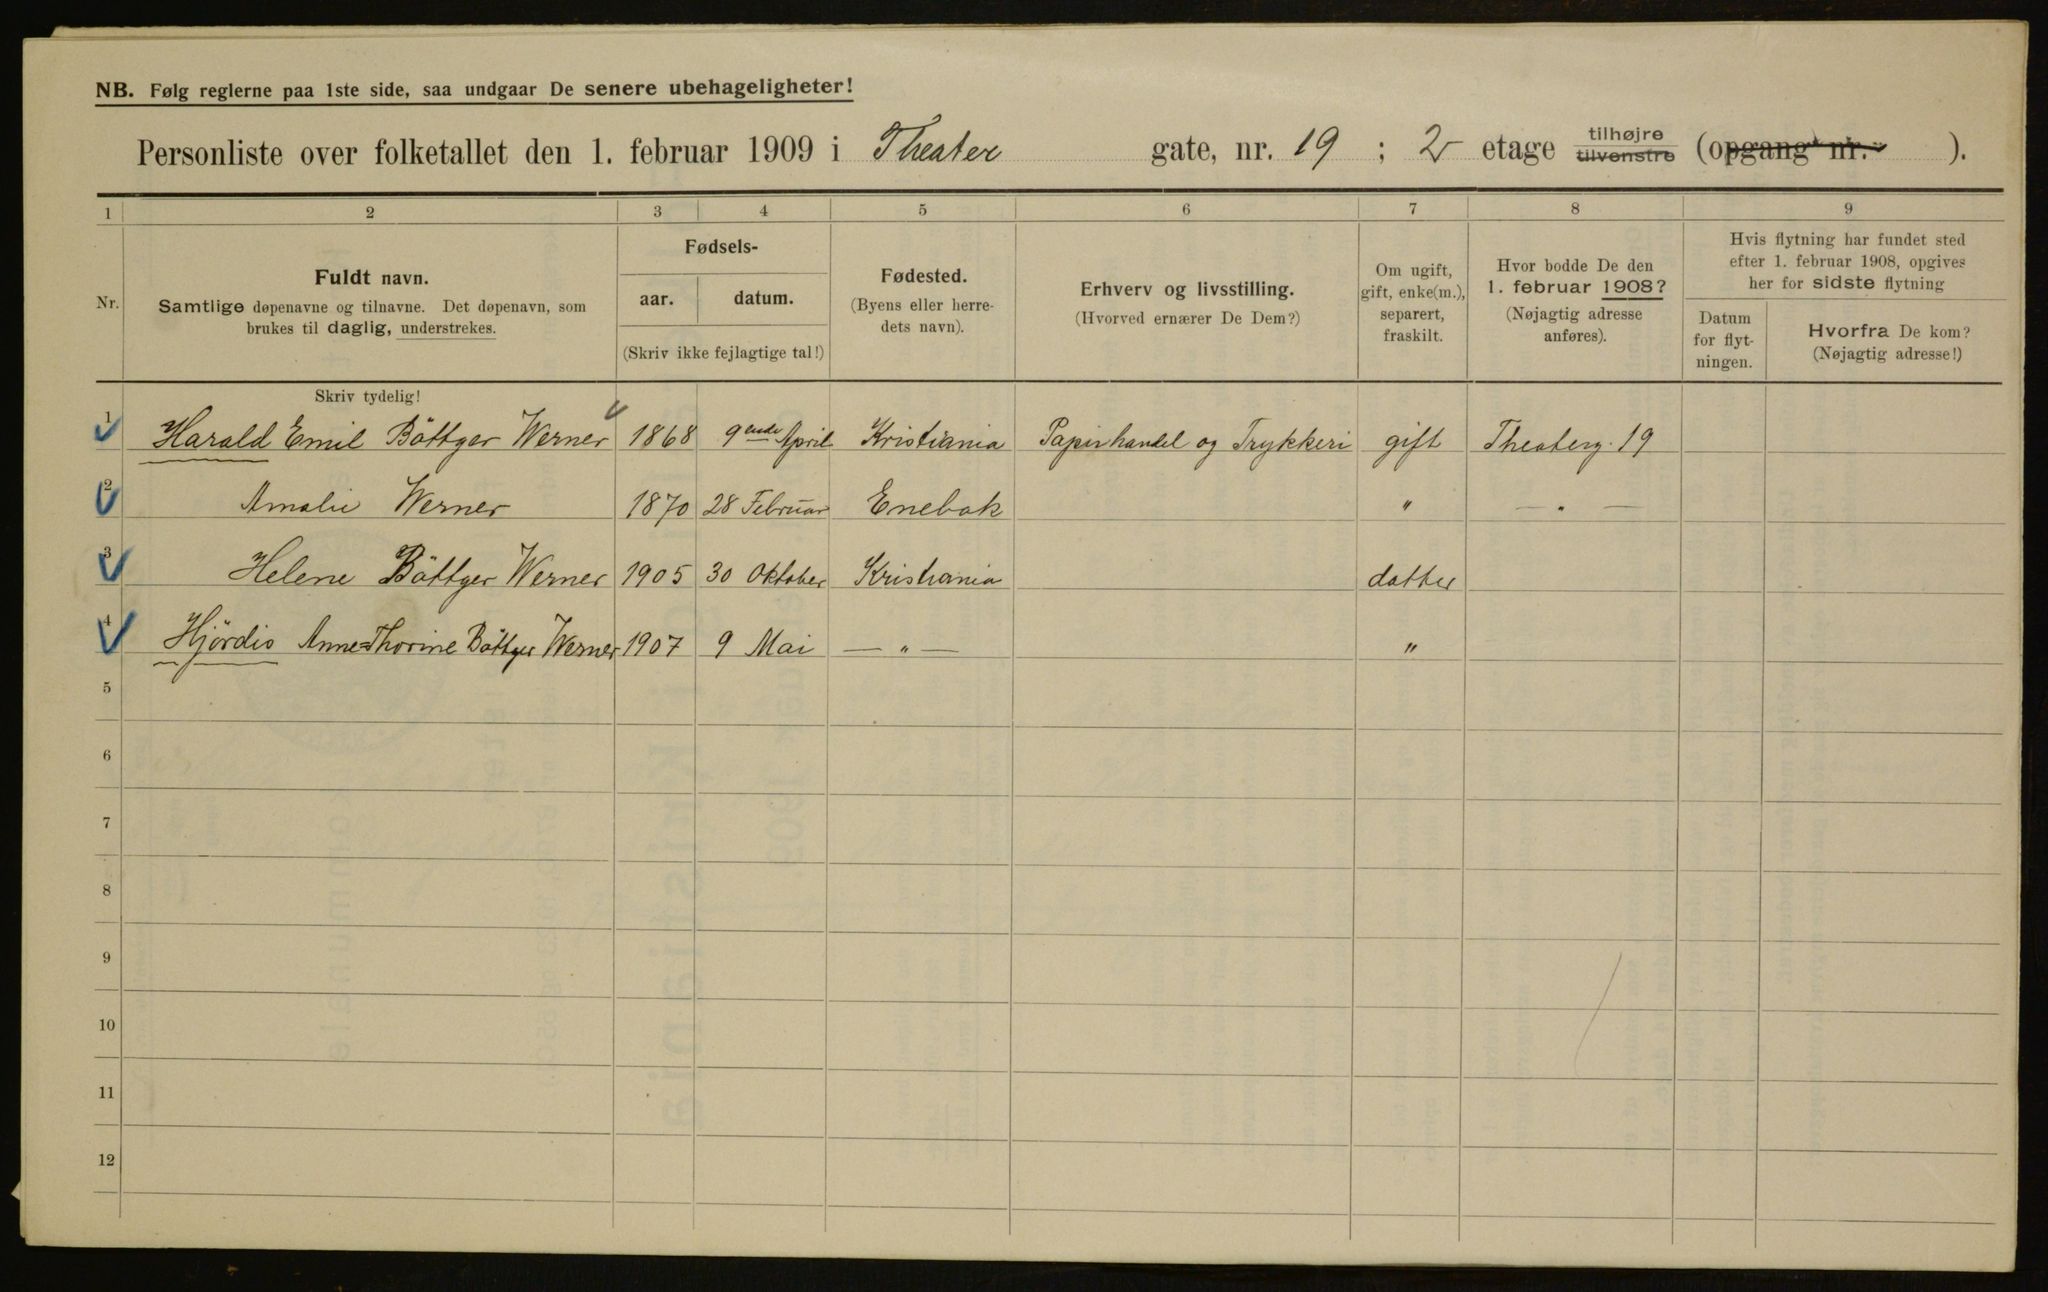 NB. Følg reglerne paa 1ste side, saa undgaar De senere ubehageligheter!
Personliste over folketallet den 1. februar 1909 i Theater gate, nr. 19 ; 2 etage tilhøjre tilvenstre (opgang nr. ).
1 2 3 4 5 6 7 8 9
Nr.
Fuldt navn.
Samtlige døpenavne og tilnavne. Det døpenavn, som
brukes til daglig, understrekes.
Fødsels-
aar. datum.
(Skriv ikke fejlagtige tal!)
Fødested.
(Byens eller herre-
dets navn).
Erhverv og livsstilling.
(Hvorved ernærer De Dem?)
Om ugift,
gift, enke(m.),
separert,
fraskilt.
Hvor bodde De den
1. februar 1908?
(Nøjagtig adresse
anføres).
Hvis flytning har fundet sted
efter 1. februar 1908, opgives
her for sidste flytning
Datum
for flyt-
ningen.
Hvorfra De kom?
(Nøjagtig adresse!)
Skriv tydelig!
1 Harald Emil Böttger Werner 1868 9ende April Kristiania Papirhandel og Trykkeri gift Theaterg. 19
2 Amalie Werner 1870 28 Februar Enebak " — " —
3 Helene Böttger Werner 1905 30 Oktober Kristiania datter
4 Hjördis Anne=Thorine Böttger Werner 1907 9 Mai — " — "
5
6
7
8
9
10
11
12